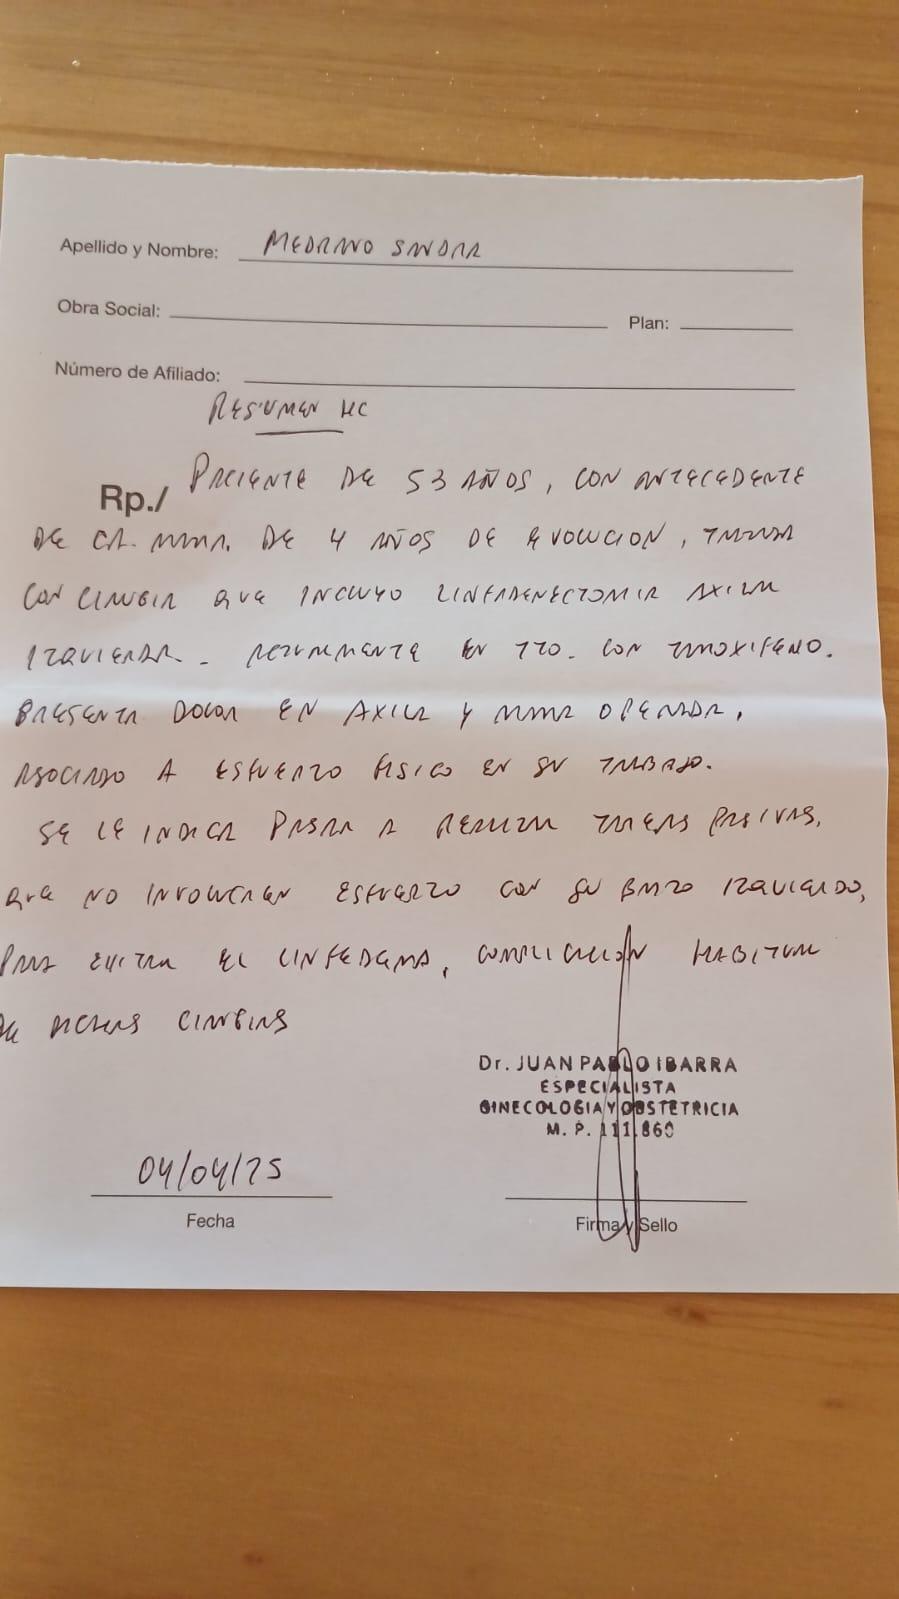 Apellido y Nombre: MEDRANO SANDRA
Obra Social: Plan:
Número de Afiliado:
RESUMEN HC
Rp./ PACIENTE DE 53 AÑOS, CON ANTECEDENTE
DE CA. MAMA. DE 4 AÑOS DE EVOLUCION, TRATADA
CON CIRUGIA QUE INCLUYO LINFADENECTOMIA AXILAR
IZQUIERDA. ACTUALMENTE EN TTO. CON TAMOXIFENO.
PRESENTA DOLOR EN AXILA Y MAMA OPERADA,
ASOCIADO A ESFUERZO FISICO EN SU TRABAJO.
SE LE INDICA PASAR A REALIZAR TAREAS PASIVAS,
QUE NO INVOLUCREN ESFUERZO CON SU BRAZO IZQUIERDO,
PARA EVITAR EL LINFEDEMA, COMPLICACION HABITUAL
DE DICHAS CIRUGIAS
Dr. JUAN PABLO IBARRA
ESPECIALISTA
GINECOLOGIA Y OBSTETRICIA
M. P. 111.860
04/04/25
Fecha
Firma y Sello